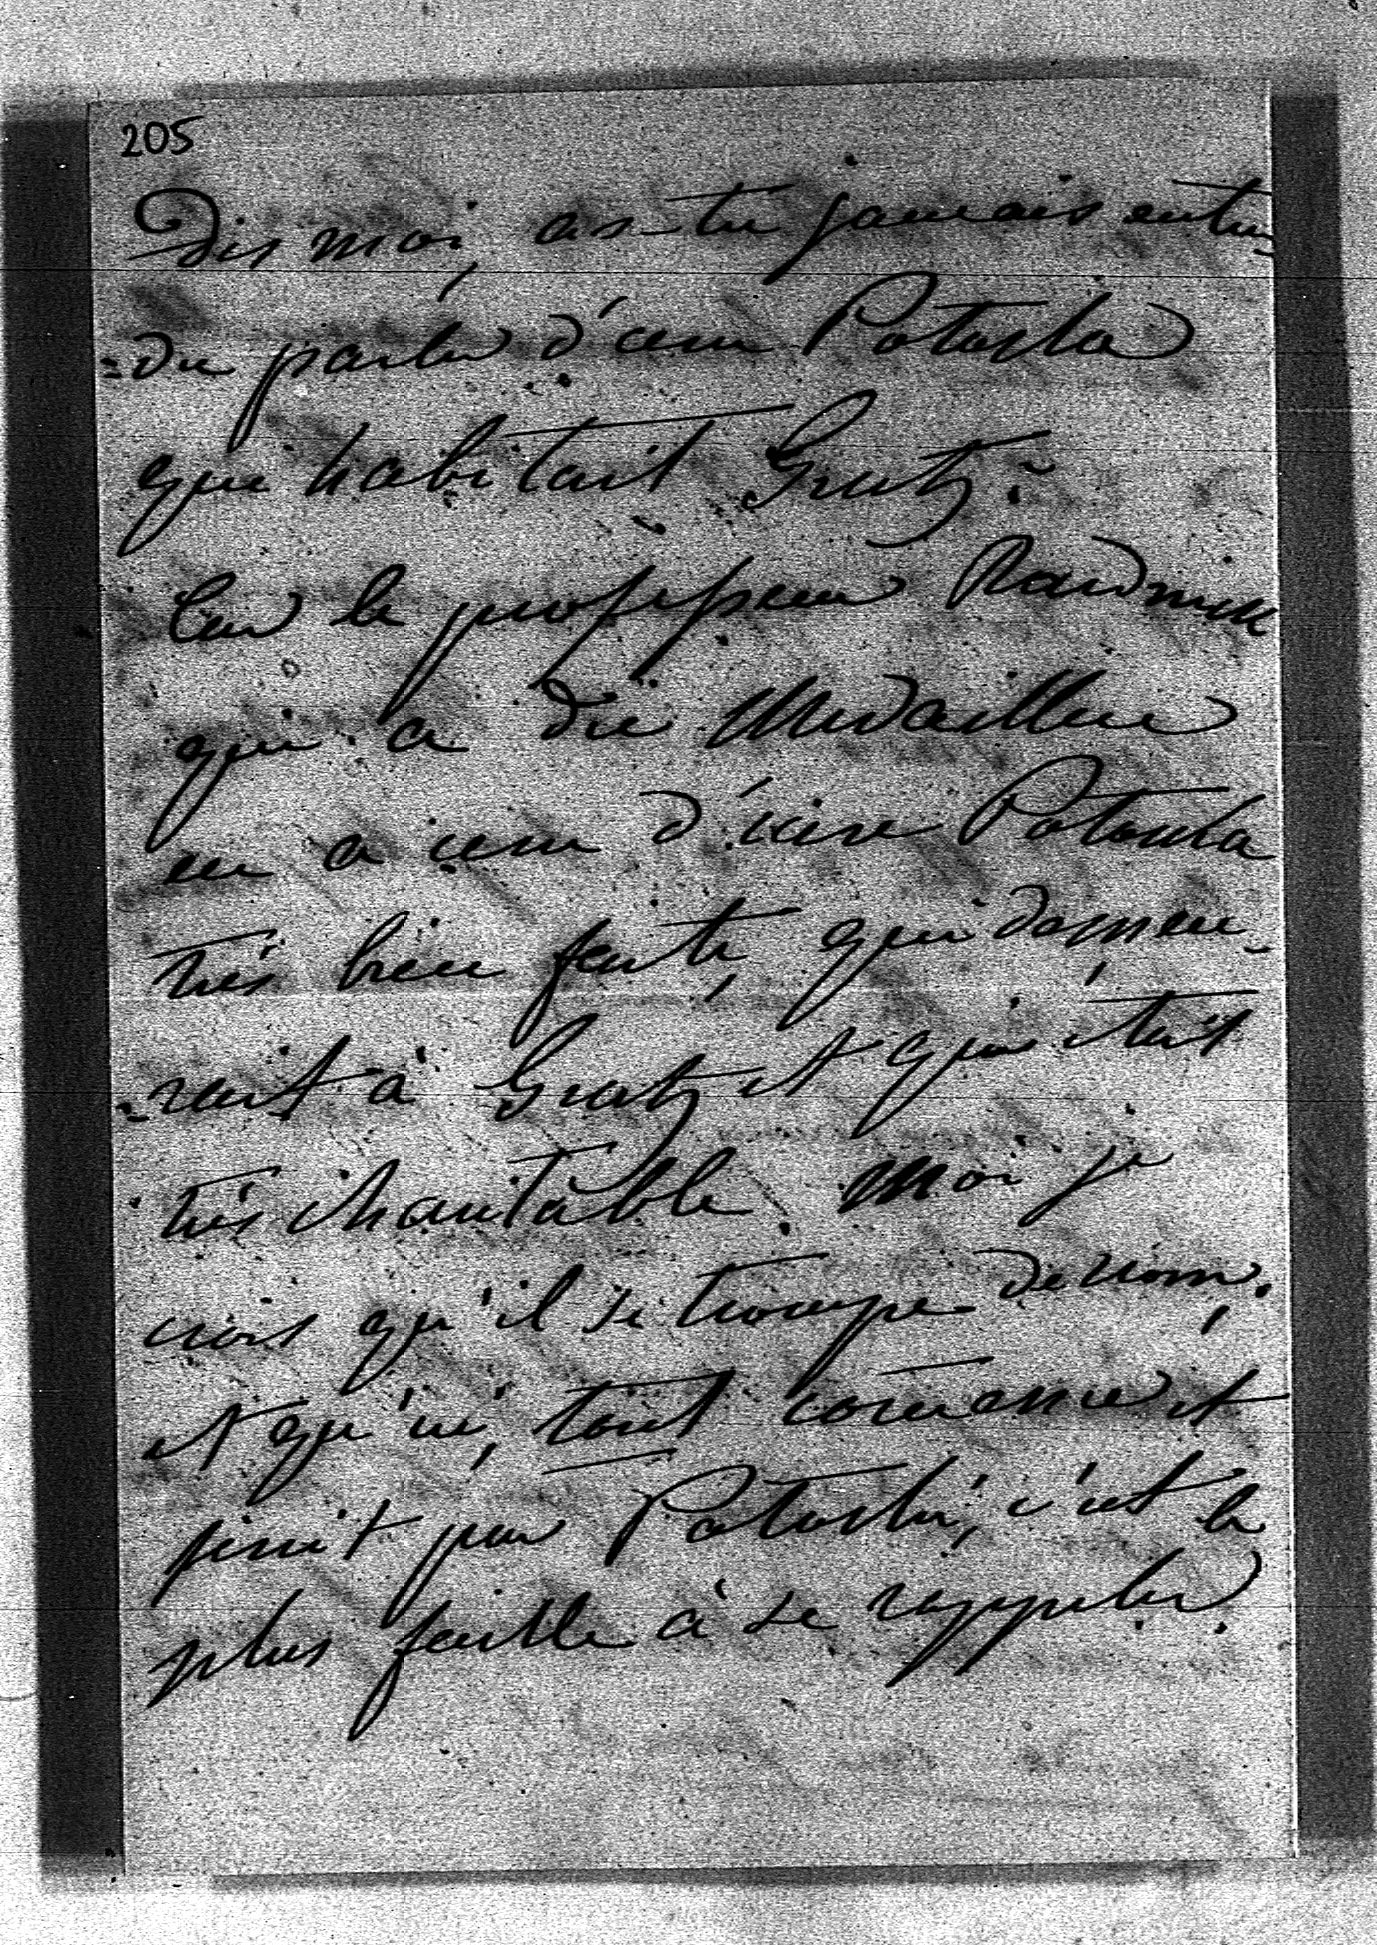 205
Dis moi, as-tu jamais enten-
-du parler d'une Potocka
qui habitait Gratz?
Car le professeur
qui a dix
en a une d'une Potocka
très bien faite, qui demeu-
-rait à Gratz et qui était
très charitable. Moi je
crois qu'il se trompe de nom,
et qu'ici, tout comence et
finit par Potocki, c'est le
plus facile à se rappeler.